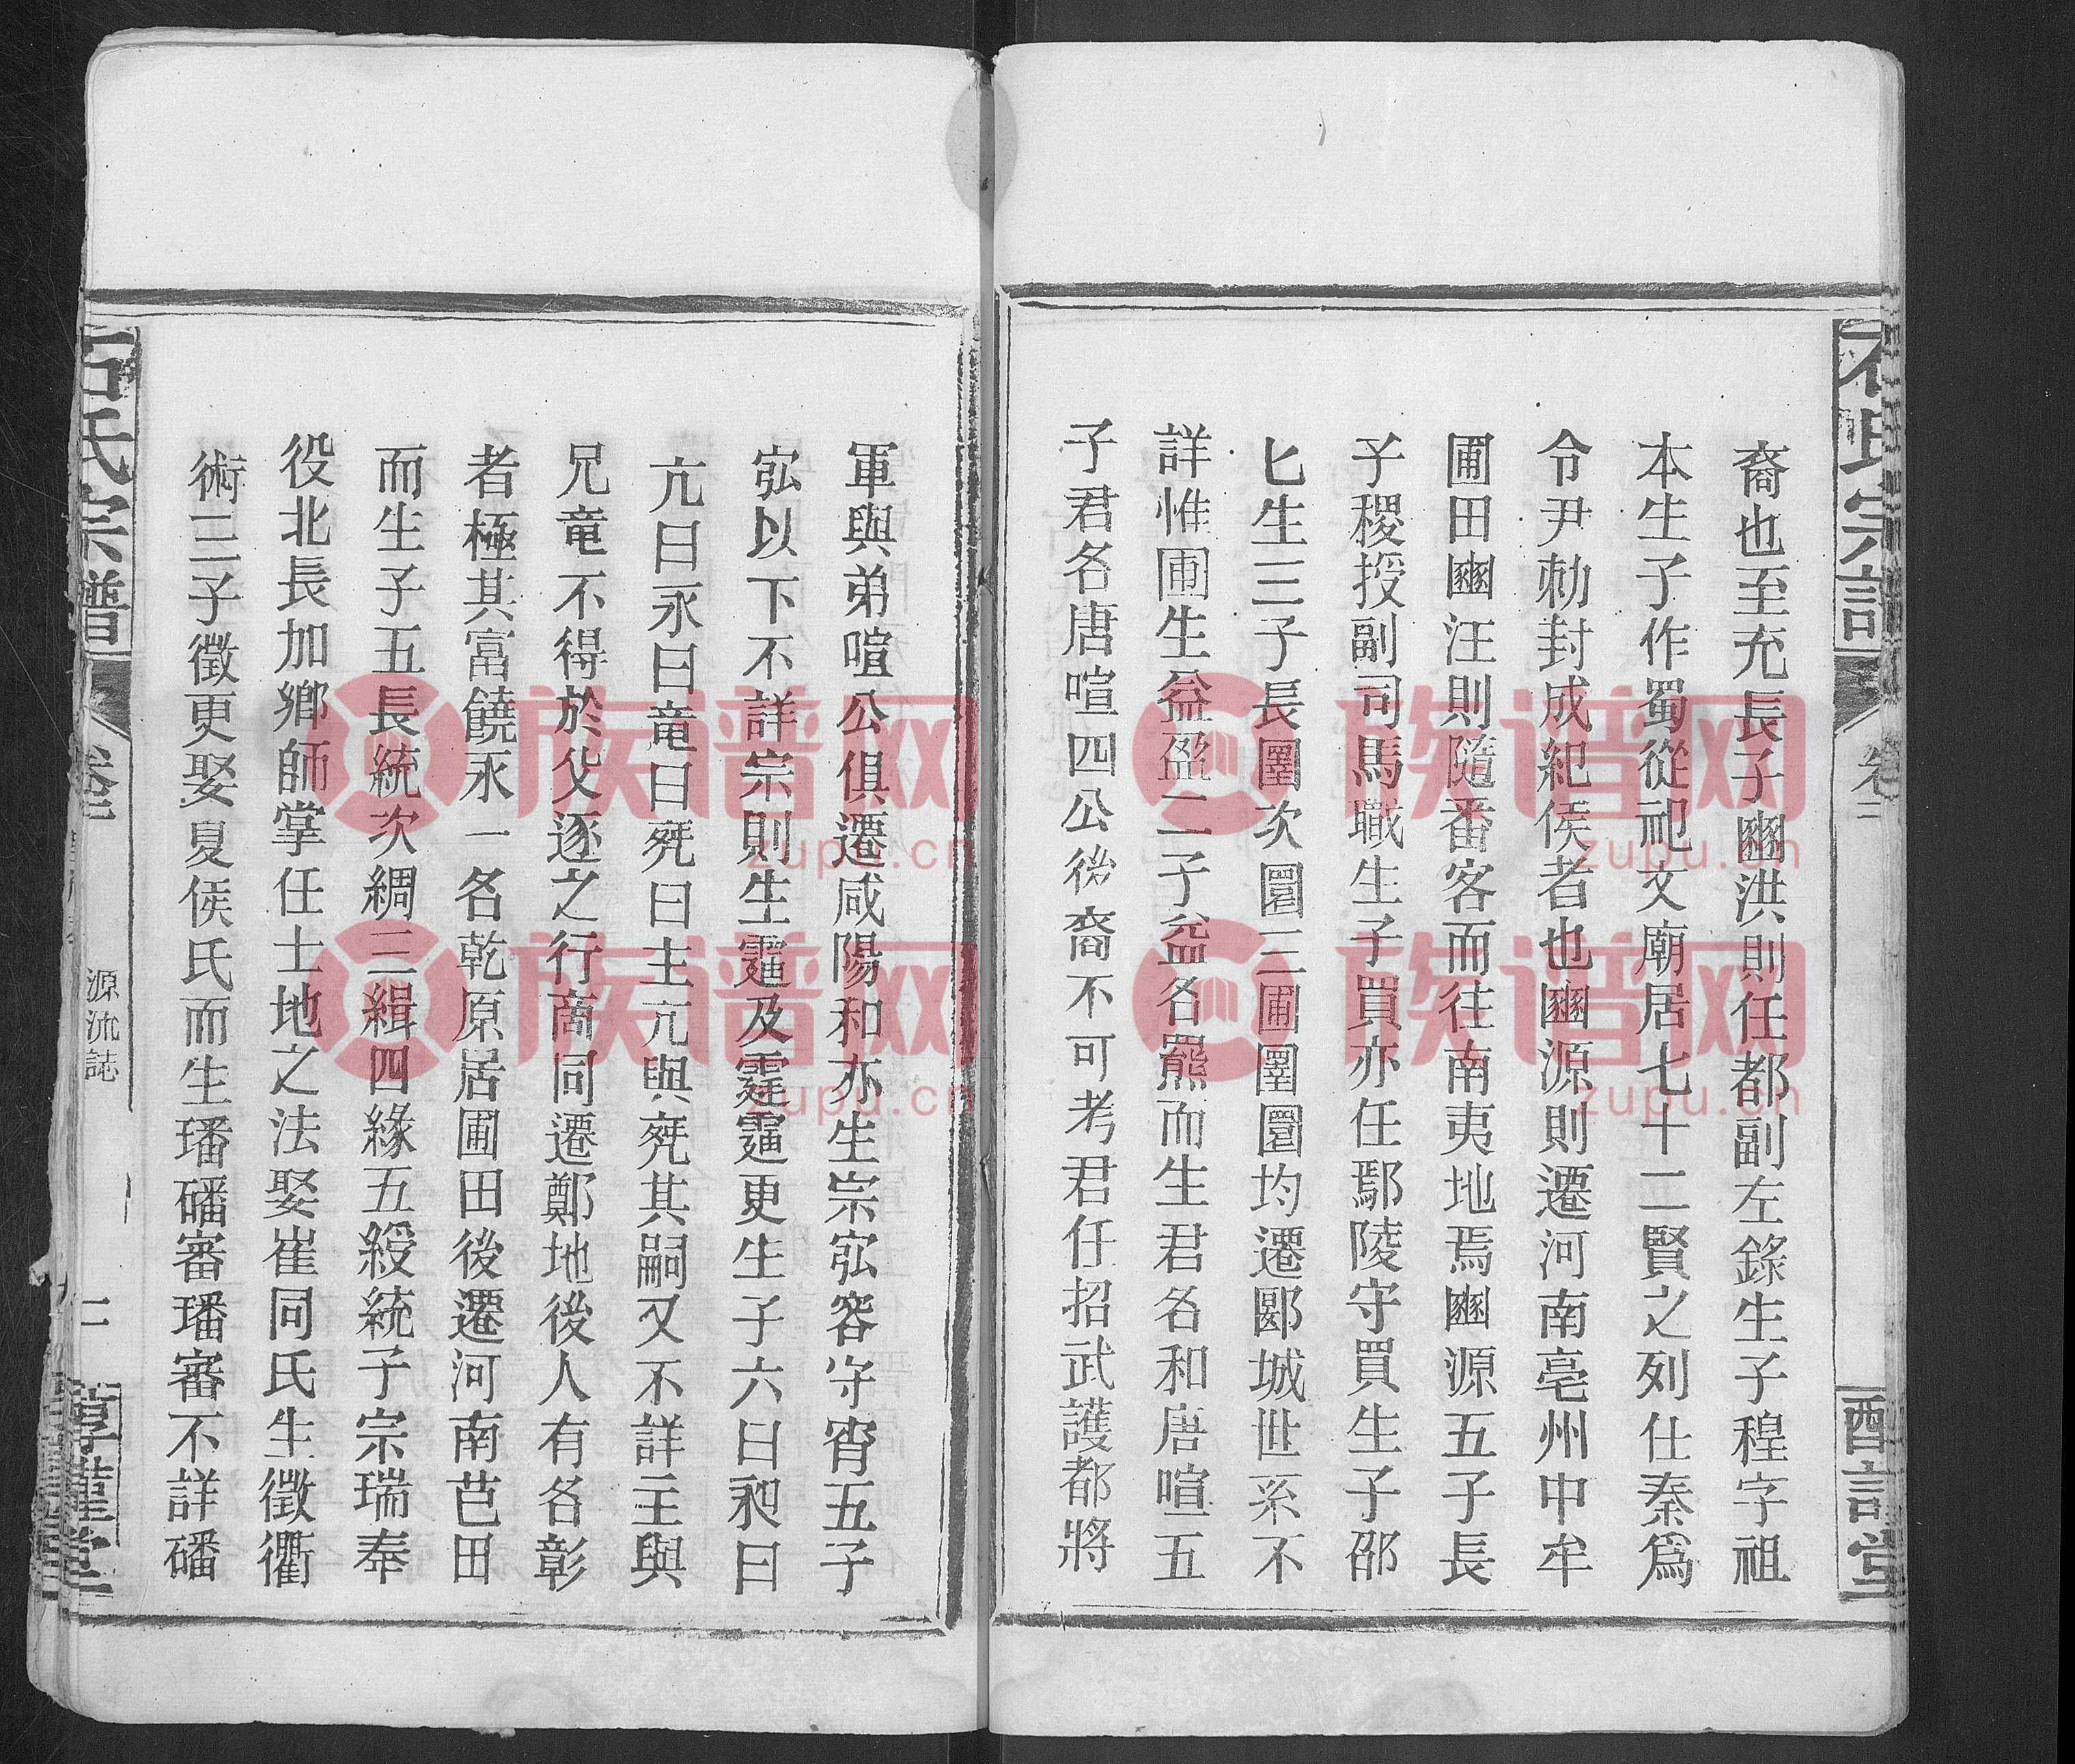 裔也至充長子豳洪則任都副左錄生子稑字祖
本生子作蜀從祀文廟居七十二賢之列仕秦為
令尹勅封成紀侯者也豳源則遷河南亳州中牟
圃田豳汪則隨番客而往南夷地焉豳源五子長
子稷授副司馬職生子買亦任鄢陵守買生子邵
匕生三子長圛次圜三圃圛圜均遷郾城世系不
詳惟圃生益盈二子益名羆而生君名和唐喧五
子君名唐喧四公後裔不可考君任招武護都將
軍與弟喧公俱遷咸陽和亦生宗宖容守宵五子
宖以下不詳宗則生靇及霆靇更生子六日昶曰
亢曰永曰竜曰竟曰主亢與竟其嗣又不詳主與
兄竜不得於父逐之行商同遷鄭地後人有名彰
者極其富饒永一名乾原居圃田後遷河南芭田
而生子五長統次綢三緝四緣五綬統子宗瑞奉
役北長加鄉師掌任士地之法娶崔同氏生徵衢
術三子徵更娶夏侯氏而生璠磻審璠審不詳磻
石氏宗譜
卷三
源流誌
二
惇謹堂
族谱网
zupu.cn
族谱网
zupu.cn
族谱网
zupu.cn
族谱网
zupu.cn